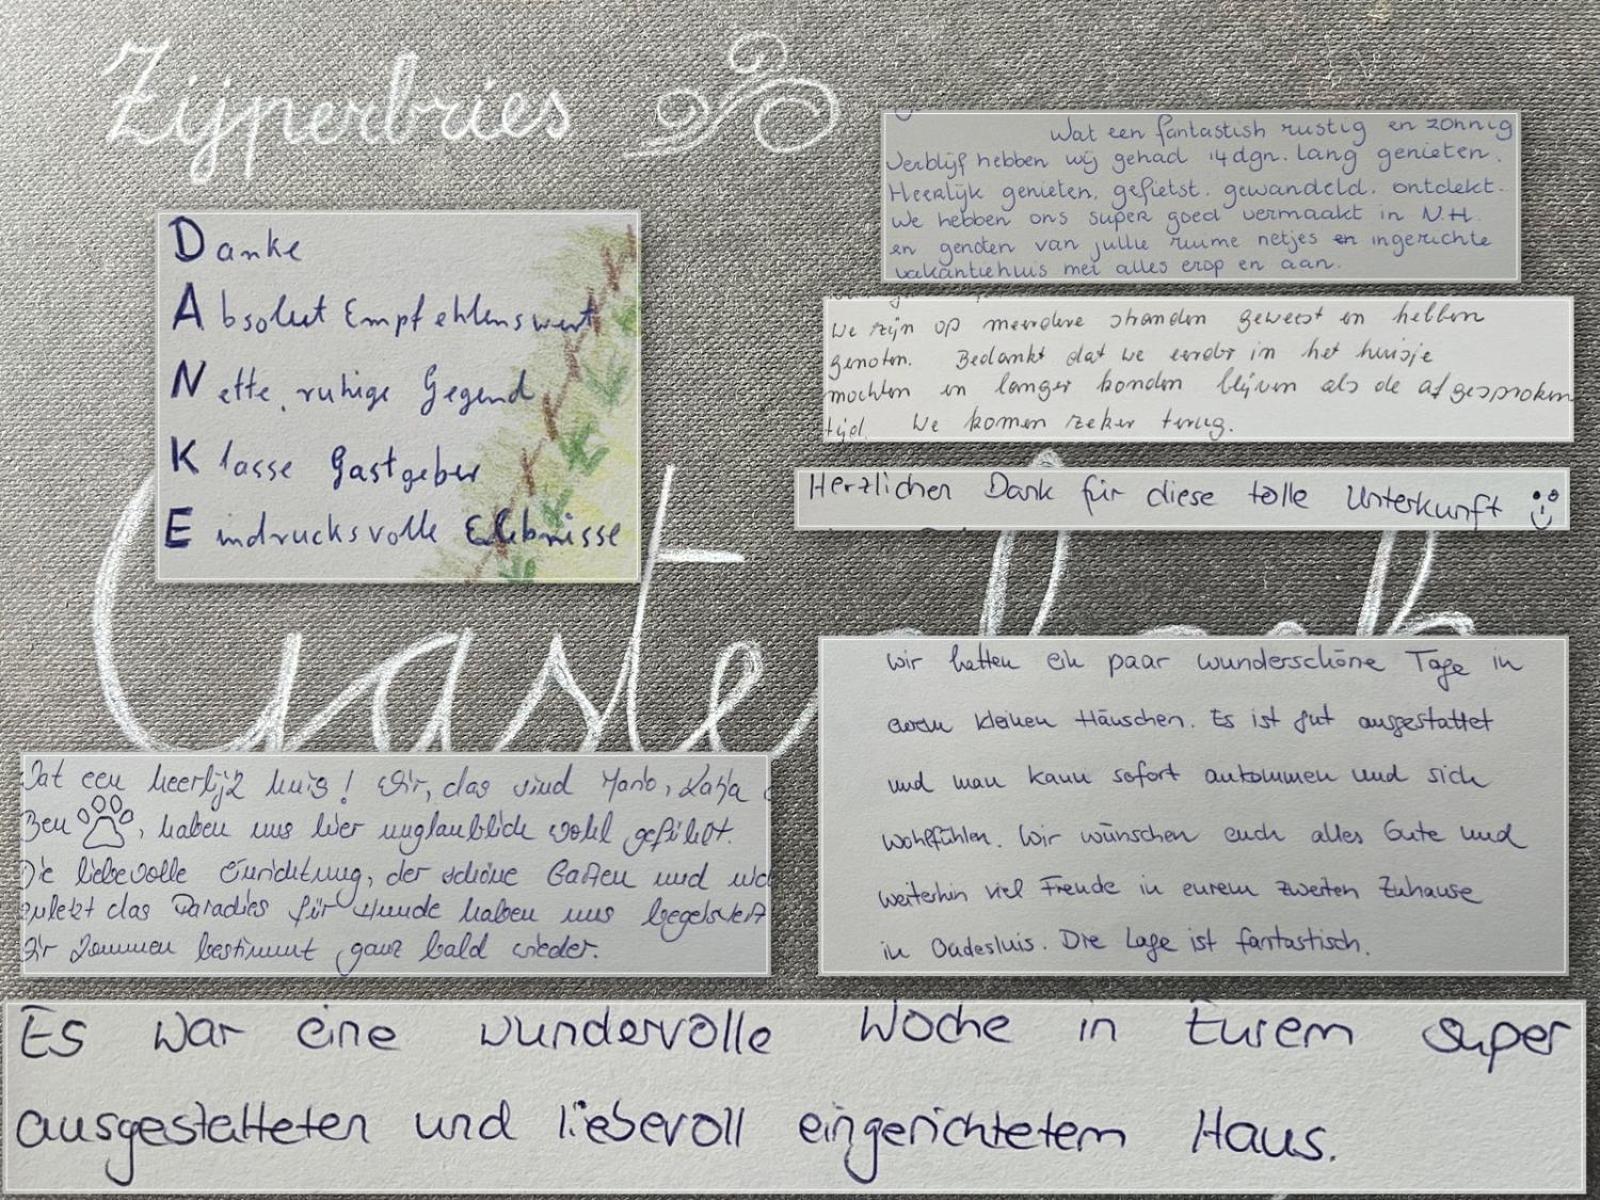 Zijperbries
Danke
Absolut Empfehlenswert
Nette, ruhige Gegend
Klasse Gastgeber
Eindrucksvolle Erlebnisse
Wat een fantastisch rustig en zonnig
verblijf hebben wij gehad 14 dgn. lang genieten.
Heerlijk genieten, gefietst. gewandeld. ontdekt.
We hebben ons super goed vermaakt in N.H.
en genoten van jullie ruime netjes en ingerichte
vakantiehuis met alles erop en aan.
We zijn op meerdere stranden geweest en hebben
genoten. Bedankt dat we eerder in het huisje
mochten en langer konden blijven als de afgesproken
tijd. We komen zeker terug.
Herzlichen Dank für diese tolle Unterkunft
Gäste
Wir hatten ein paar wunderschöne Tage in
eurem kleinen Häuschen. Es ist gut ausgestattet
und man kann sofort ankommen und sich
wohlfühlen. Wir wünschen euch alles Gute und
weiterhin viel Freude in eurem zweiten Zuhause
in Oudesluis. Die Lage ist fantastisch.
Wat een heerlijk huis! Wir, das sind Mario, Katja
Ben, haben uns hier unglaublich wohl gefühlt.
Die liebevolle Einrichtung, der schöne Garten und
zuletzt das Paradies für Hunde haben uns begeistert
Wir kommen bestimmt ganz bald wieder.
Es war eine wundervolle Woche in Eurem super
ausgestatteten und liebevoll eingerichtetem Haus.